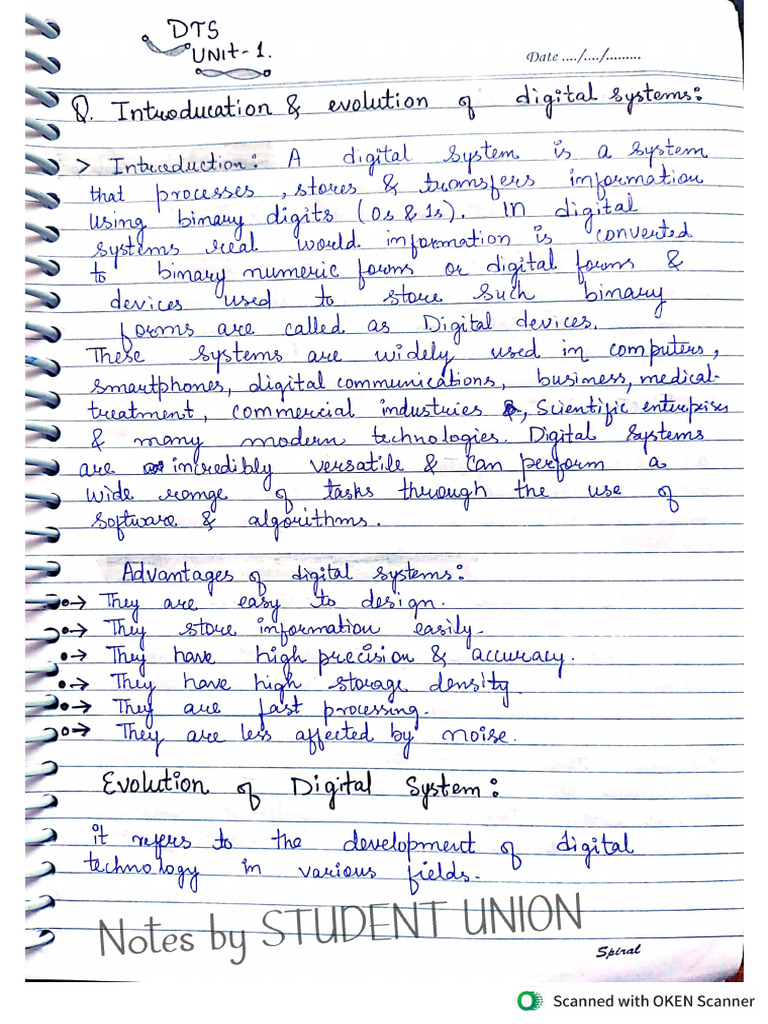 DTS
UNIt-1.
Date ..../..../.........
Q. Introducation & evolution of digital systems:
> Introduction: A digital system is a system
that processes, stores & transfers information
using binary digits (0s & 1s). In digital
systems real world information is converted
to binary numeric forms or digital forms &
devices used to store such binary
forms are called as Digital devices.
These systems are widely used in computers,
smartphones, digital communications, business, medical-
treatment, commercial industries &, Scientific enterprises
& many modern technologies. Digital Systems
are incredibly versatile & can perform a
wide range of tasks through the use of
software & algorithms.
Advantages of digital systems:
•→ They are easy to design.
•→ They store information easily.
•→ They have high precision & accuracy.
•→ They have high storage density
•→ They are fast processing.
•→ They are less affected by noise.
Evolution of Digital System:
it refers to the development of digital
technology in various fields.
Notes by STUDENT UNION
Spiral
Scanned with OKEN Scanner